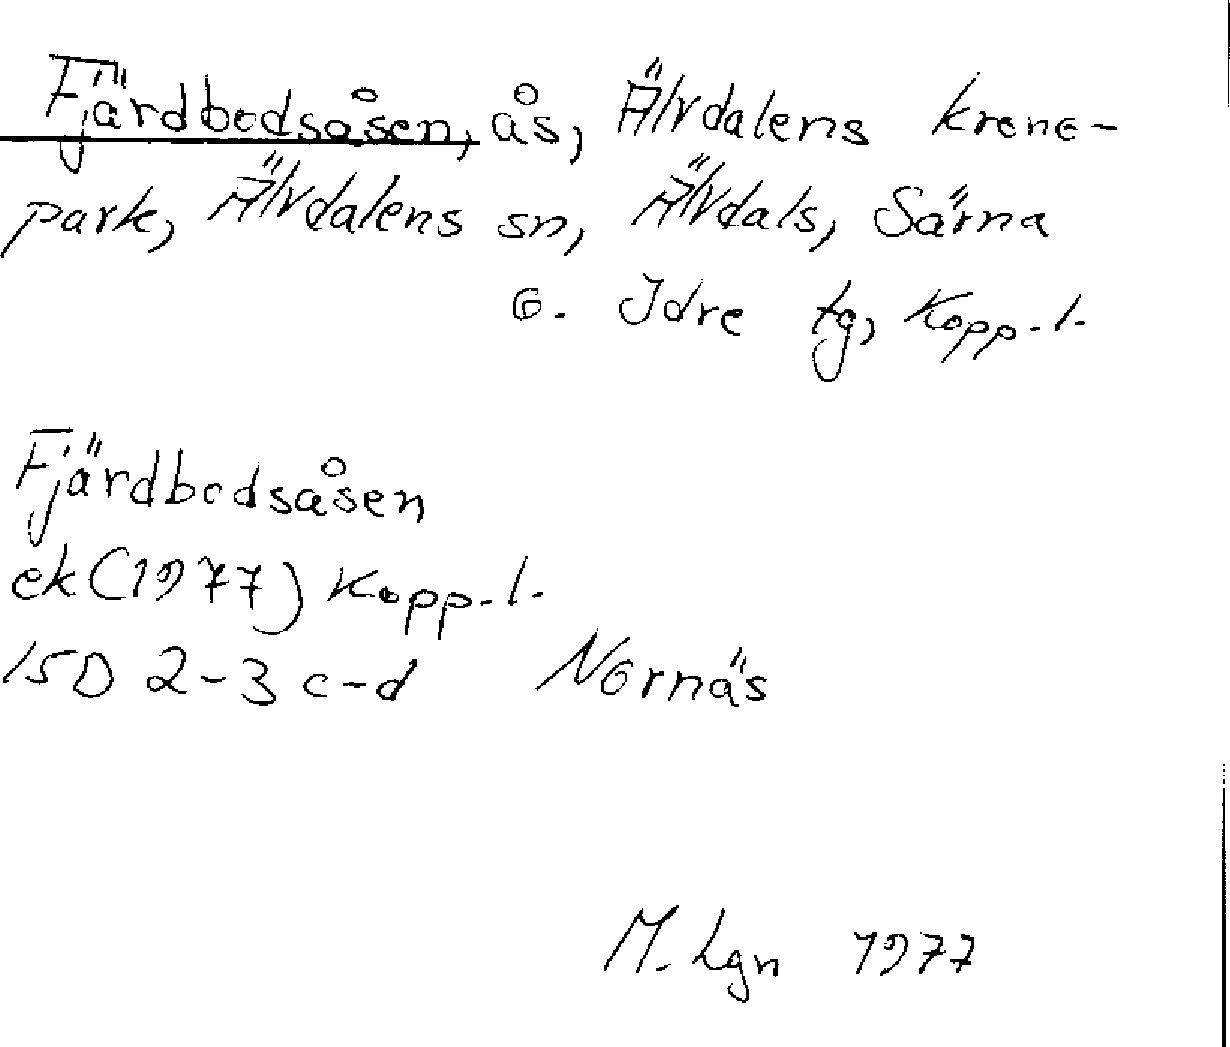 Fjärdbodsåsen, ås, Älvdalens krono-
park, Älvdalens sn, Älvdals, Särna
o. Idre tg, Kopp. l.
Fjärdbodsåsen
ek (1977) Kopp. l.
15D 2-3 c-d Nornäs
M. Lgn 1977